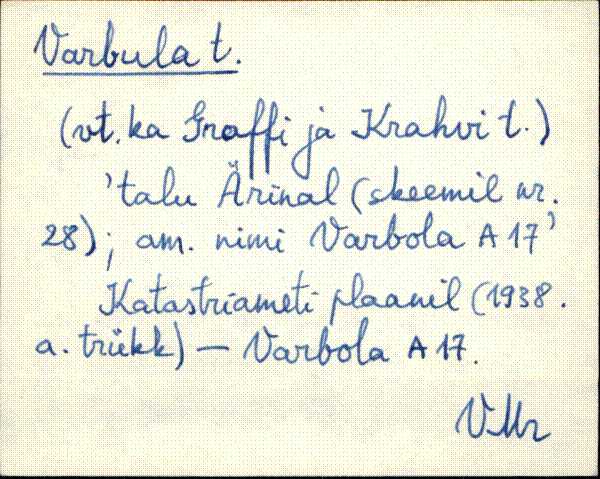 Varbula t.
(vt. ka Graffi ja Krahvi t.)
'talu Ärinal (skeemil nr.
28); am. nimi Varbola A 17'
Katastriameti plaanil (1938.
a. trükk) — Varbola A 17.
VMr